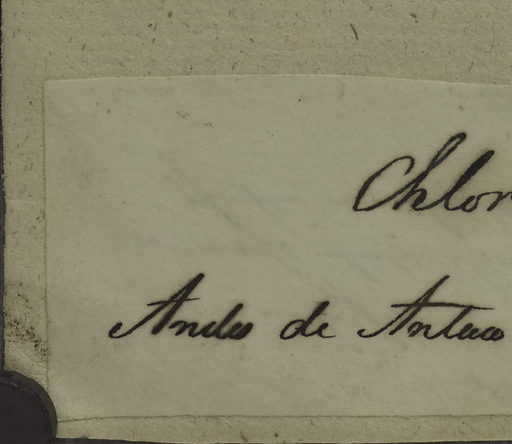 Chlor
Andes de Antuco